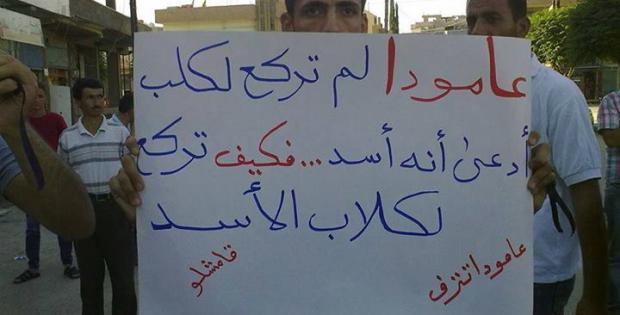 عامودا لم تركع لكلب
أدعى أنه أسد... فكيف تركع
لكلاب الأسد
قامشلو
عامودا تنزف